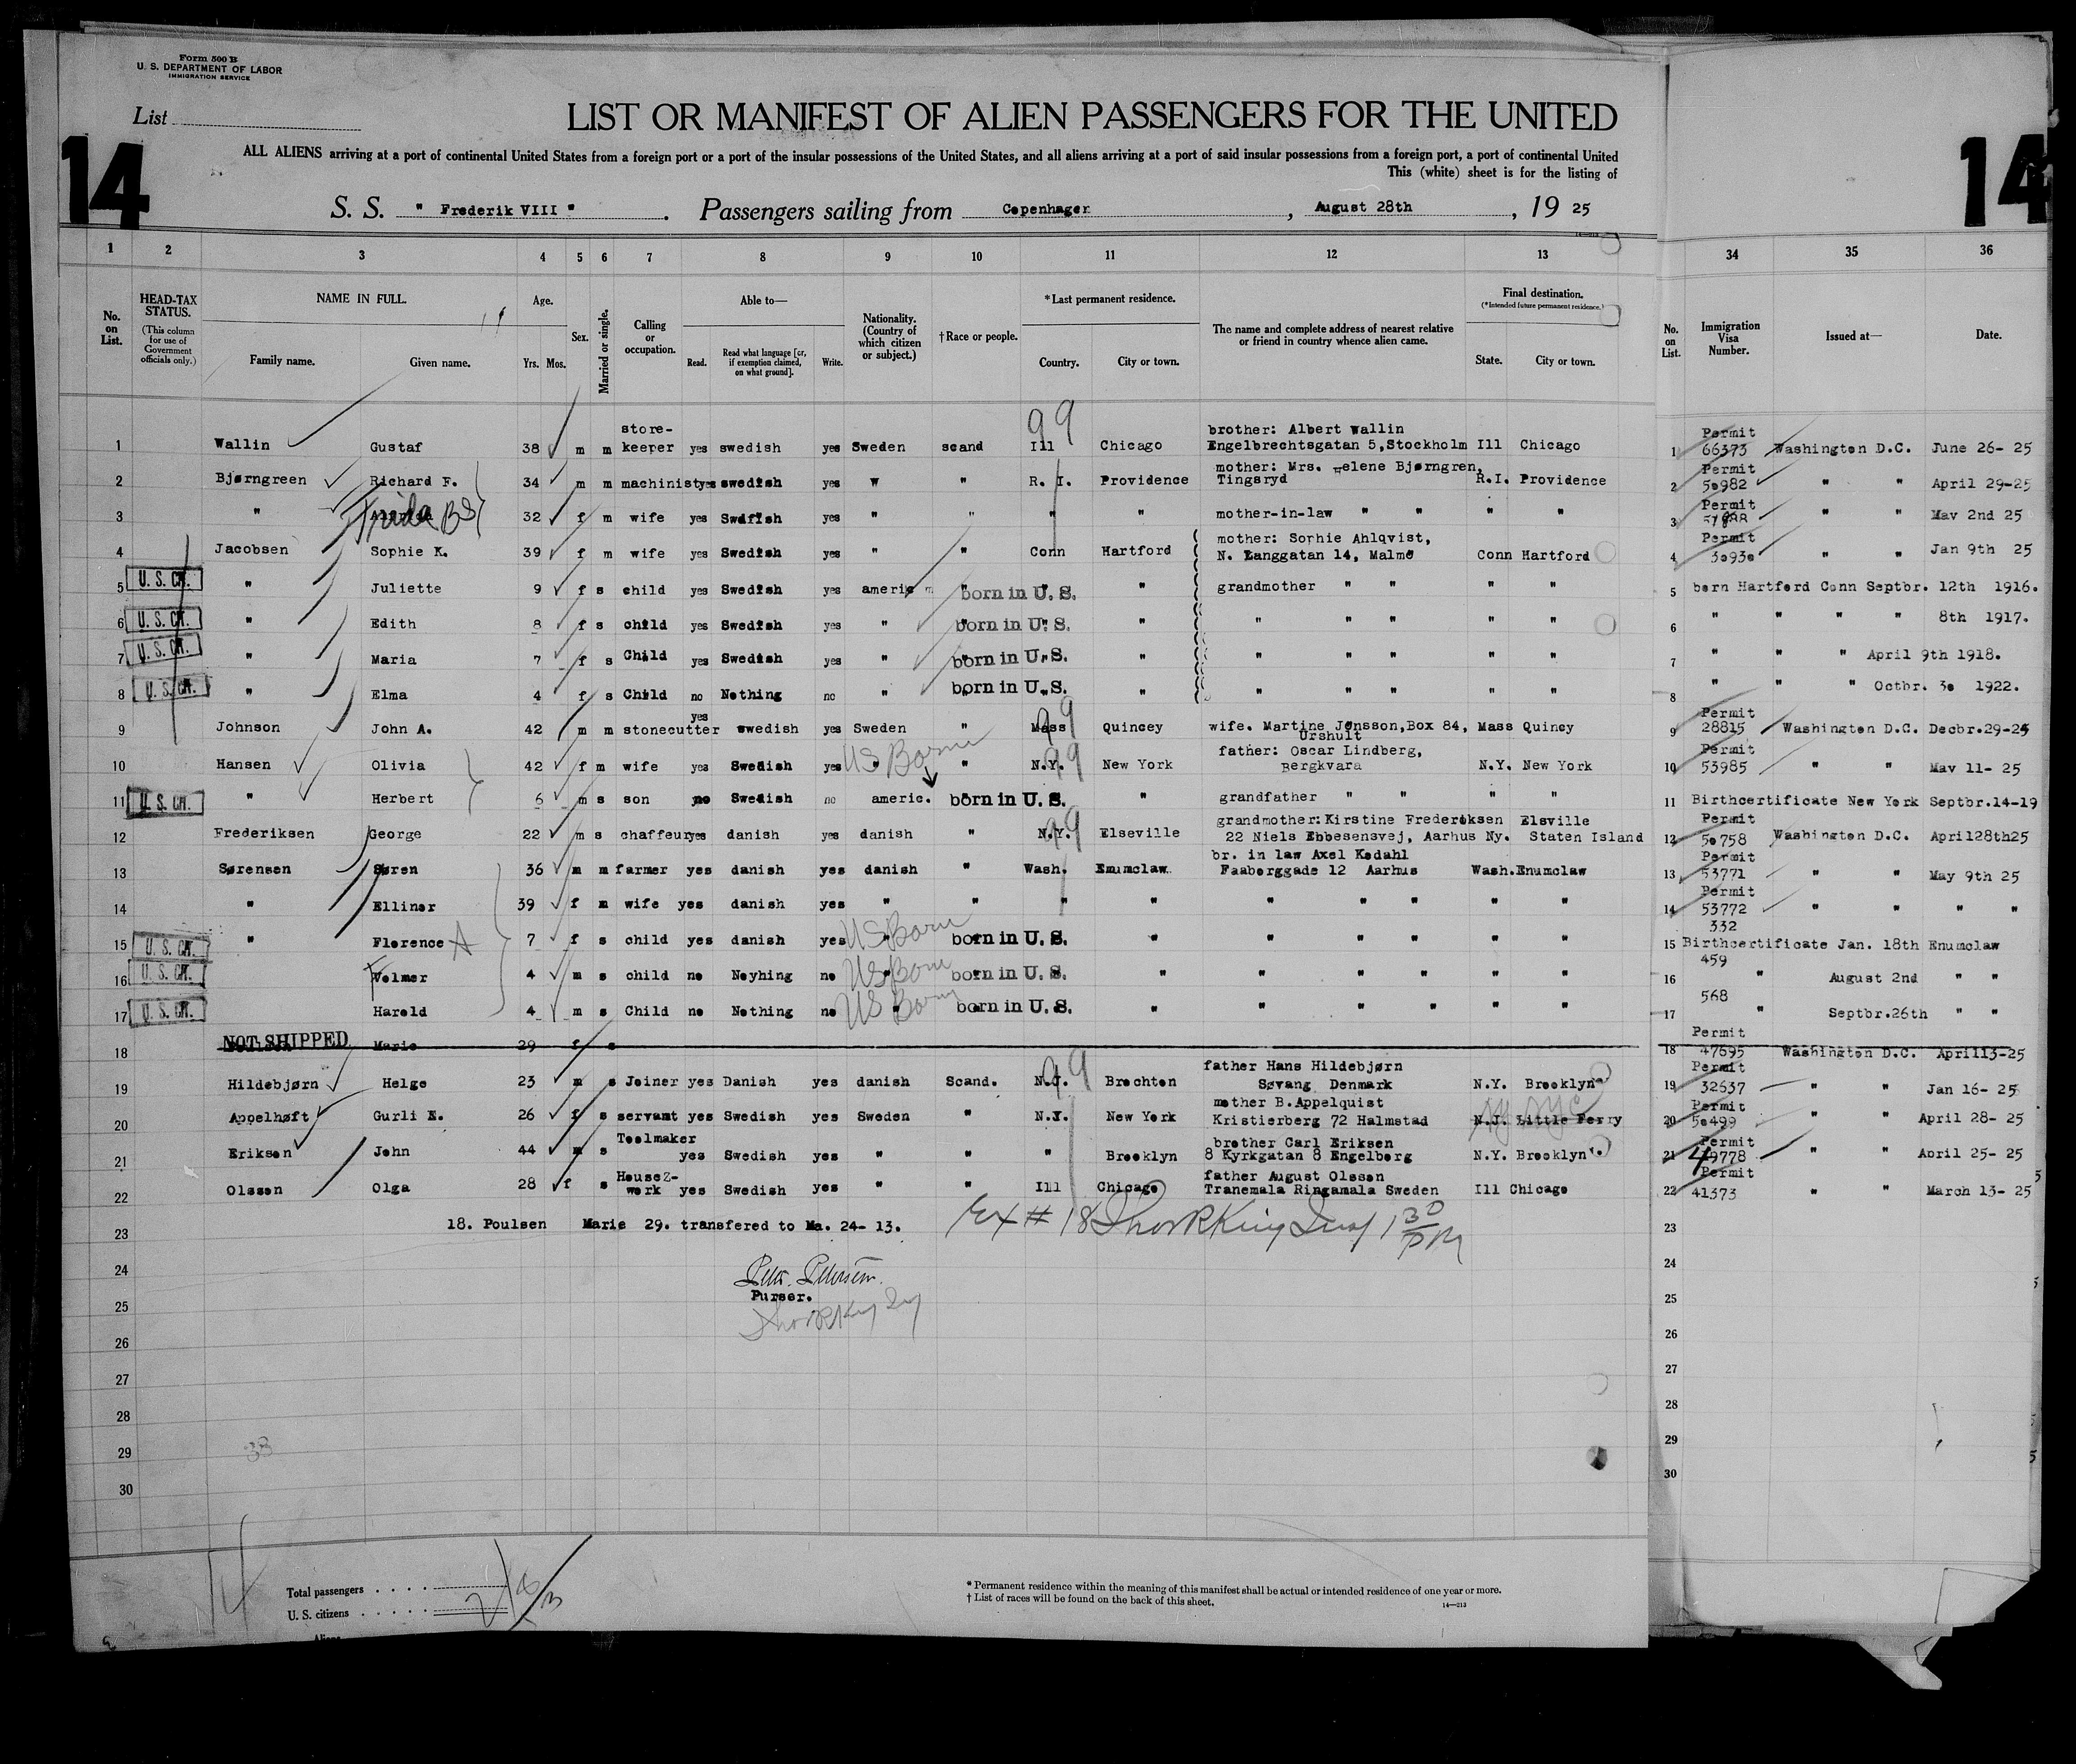 Form 500 B
U. S. DEPARTMENT OF LABOR
IMMIGRATION SERVICE
List
LIST OR MANIFEST OF ALIEN PASSENGERS FOR THE UNITED
14
14
ALL ALIENS arriving at a port of continental United States from a foreign port or a port of the insular possessions of the United States, and all aliens arriving at a port of said insular possessions from a foreign port, a port of continental United
This (white) sheet is for the listing of
S. S. " Frederik VIII " . Passengers sailing from Copenhagen , August 28th , 19 25
14—213
1 2 3 4 5 6 7 8 9 10 11 12 13 34 35 36
No. on List. HEAD-TAX STATUS. (This column for use of Government officials only.) NAME IN FULL. Family name. Given name. Age. Yrs. Mos. Sex. Married or single. Calling or occupation. Able to— Read. Read what language [or, if exemption claimed, on what ground]. Write. Nationality. (Country of which citizen or subject.) †Race or people. *Last permanent residence. Country. City or town. The name and complete address of nearest relative or friend in country whence alien came. Final destination. (*Intended future permanent residence.) State. City or town. No. on List. Immigration Visa Number. Issued at— Date.
99
store- brother: Albert Wallin Permit
1 Wallin Gustaf 38 m m keeper yes swedish yes Sweden scand Ill Chicago Engelbrechtsgatan 5,Stockholm Ill Chicago 1 66373 Washington D.C. June 26- 25
mother: Mrs. elene Bjørngren, Permit
2 Bjørngreen Richard F. 34 m m machinist yes swedish yes " " R. I. Providence Tingsryd R.I. Providence 2 50982 " " April 29-25
Permit
3 " Frida BS 32 f m wife yes Swdfish yes " " " " mother-in-law " " " " 3 " " May 2nd 25
mother: Sophie Ahlqvist, Permit
4 Jacobsen Sophie K. 39 f m wife yes Swedish yes " " Conn Hartford N. Langgatan 14, Malmø Conn Hartford 4 30930 " " Jan 9th 25
5 U. S. CIT. " Juliette 9 f s child yes Swedish yes americ " born in U. S. " grandmother " " " " 5 born Hartford Conn Septbr. 12th 1916.
6 U. S. CIT. " Edith 8 f s child yes Swedish yes " born in U. S. " " " " " " 6 " " " " 8th 1917.
7 U. S. CIT. " Maria 7 f s Child yes Swedish yes " born in U. S. " " " " " " 7 " " " April 9th 1918.
8 U. S. CIT. " Elma 4 f s Child no Nothing no " born in U. S. " " " " " " 8 " " " Octbr. 30 1922.
99
yes Permit
9 Johnson John A. 42 m m stonecutter swedish yes Sweden " Mass Quincey wife. Martine Jønsson,Box 84, Mass Quincy 9 28815 Washington D.C. Decbr.29-24
Urshult
US Borne 99
father: Oscar Lindberg, Permit
10 Hansen Olivia 42 f m wife yes Swedish yes " " N.Y. New York Bergkvara N.Y. New York 10 53985 " " May 11- 25
11 U. S. CIT. " Herbert 6 m s son no Swedish no americ. born in U. S. " grandfather " " " " 11 Birthcertificate New York Septbr.14-19
99
grandmother:Kirstine Frederiksen Elsville Permit
12 Frederiksen George 22 m s chaffeur yes danish yes danish " N.Y. Elseville 22 Niels Ebbesensvej, Aarhus Ny. Staten Island 12 50758 Washington D.C. April28th25
br. in law Axel Kedahl Permit
13 Sørensen Søren 36 m m farmer yes danish yes danish " Wash. Enumclaw. Faaborggade 12 Aarhus Wash.Enumclaw 13 53771 " " May 9th 25
Permit
14 " Ellinor 39 f m wife yes danish yes " " " " " " " " " 14 53772 " " " "
332
15 U. S. CIT. " Florence A 7 f s child yes danish yes US Born born in U. S. " " " " " " 15 Birthcertificate Jan. 18th Enumclaw
459
16 U. S. CIT. Volmer 4 m s child no Noyhing no US Born born in U. S. " " " " " " 16 " August 2nd " "
568
17 U. S. CIT. Harold 4 m s Child no Nothing no US Born born in U. S. " " " " " " 17 " Septbr.26th " "
Permit
18 NOT SHIPPED Marie 29 f s 18 47695 Washington D.C. April13-25
99
father Hans Hildebjørn Permit
19 Hildebjørn Helge 23 m s Joiner yes Danish yes danish Scand. Brochten Søvang Denmark N.Y. Brooklyn 19 32637 " " Jan 16- 25
mother B.Appelquist Permit
20 Appelhøft Gurli E. 26 f s servant yes Swedish yes Sweden " N.Y. New York Kristierberg 72 Halmstad N.J. Little Ferry NY NYC 20 50499 " " April 28- 25
Toolmaker brother Carl Eriksen Permit
21 Eriksen John 44 m s yes Swedish yes " " " Brooklyn 8 Kyrkgatan 8 Engelberg N.Y. Brooklyn 21 49778 " " April 25- 25
House- father August Olsson Permit
22 Olsson Olga 28 f s work yes Swedish yes " " Ill Chicago Tranemala Ringamala Sweden Ill Chicago 22 41373 " " March 13- 25
23 18. Poulsen Marie 29. transfered to Ma. 24- 13. Ex # 18 Thor R King Insp 1 30 PM 23
24 24
Petersen.
25 Purser. 25
Thor R King
26 26
27 27
28 28
29 38 29
30 30
Total passengers
U. S. citizens
* Permanent residence within the meaning of this manifest shall be actual or intended residence of one year or more.
† List of races will be found on the back of this sheet.
14—213